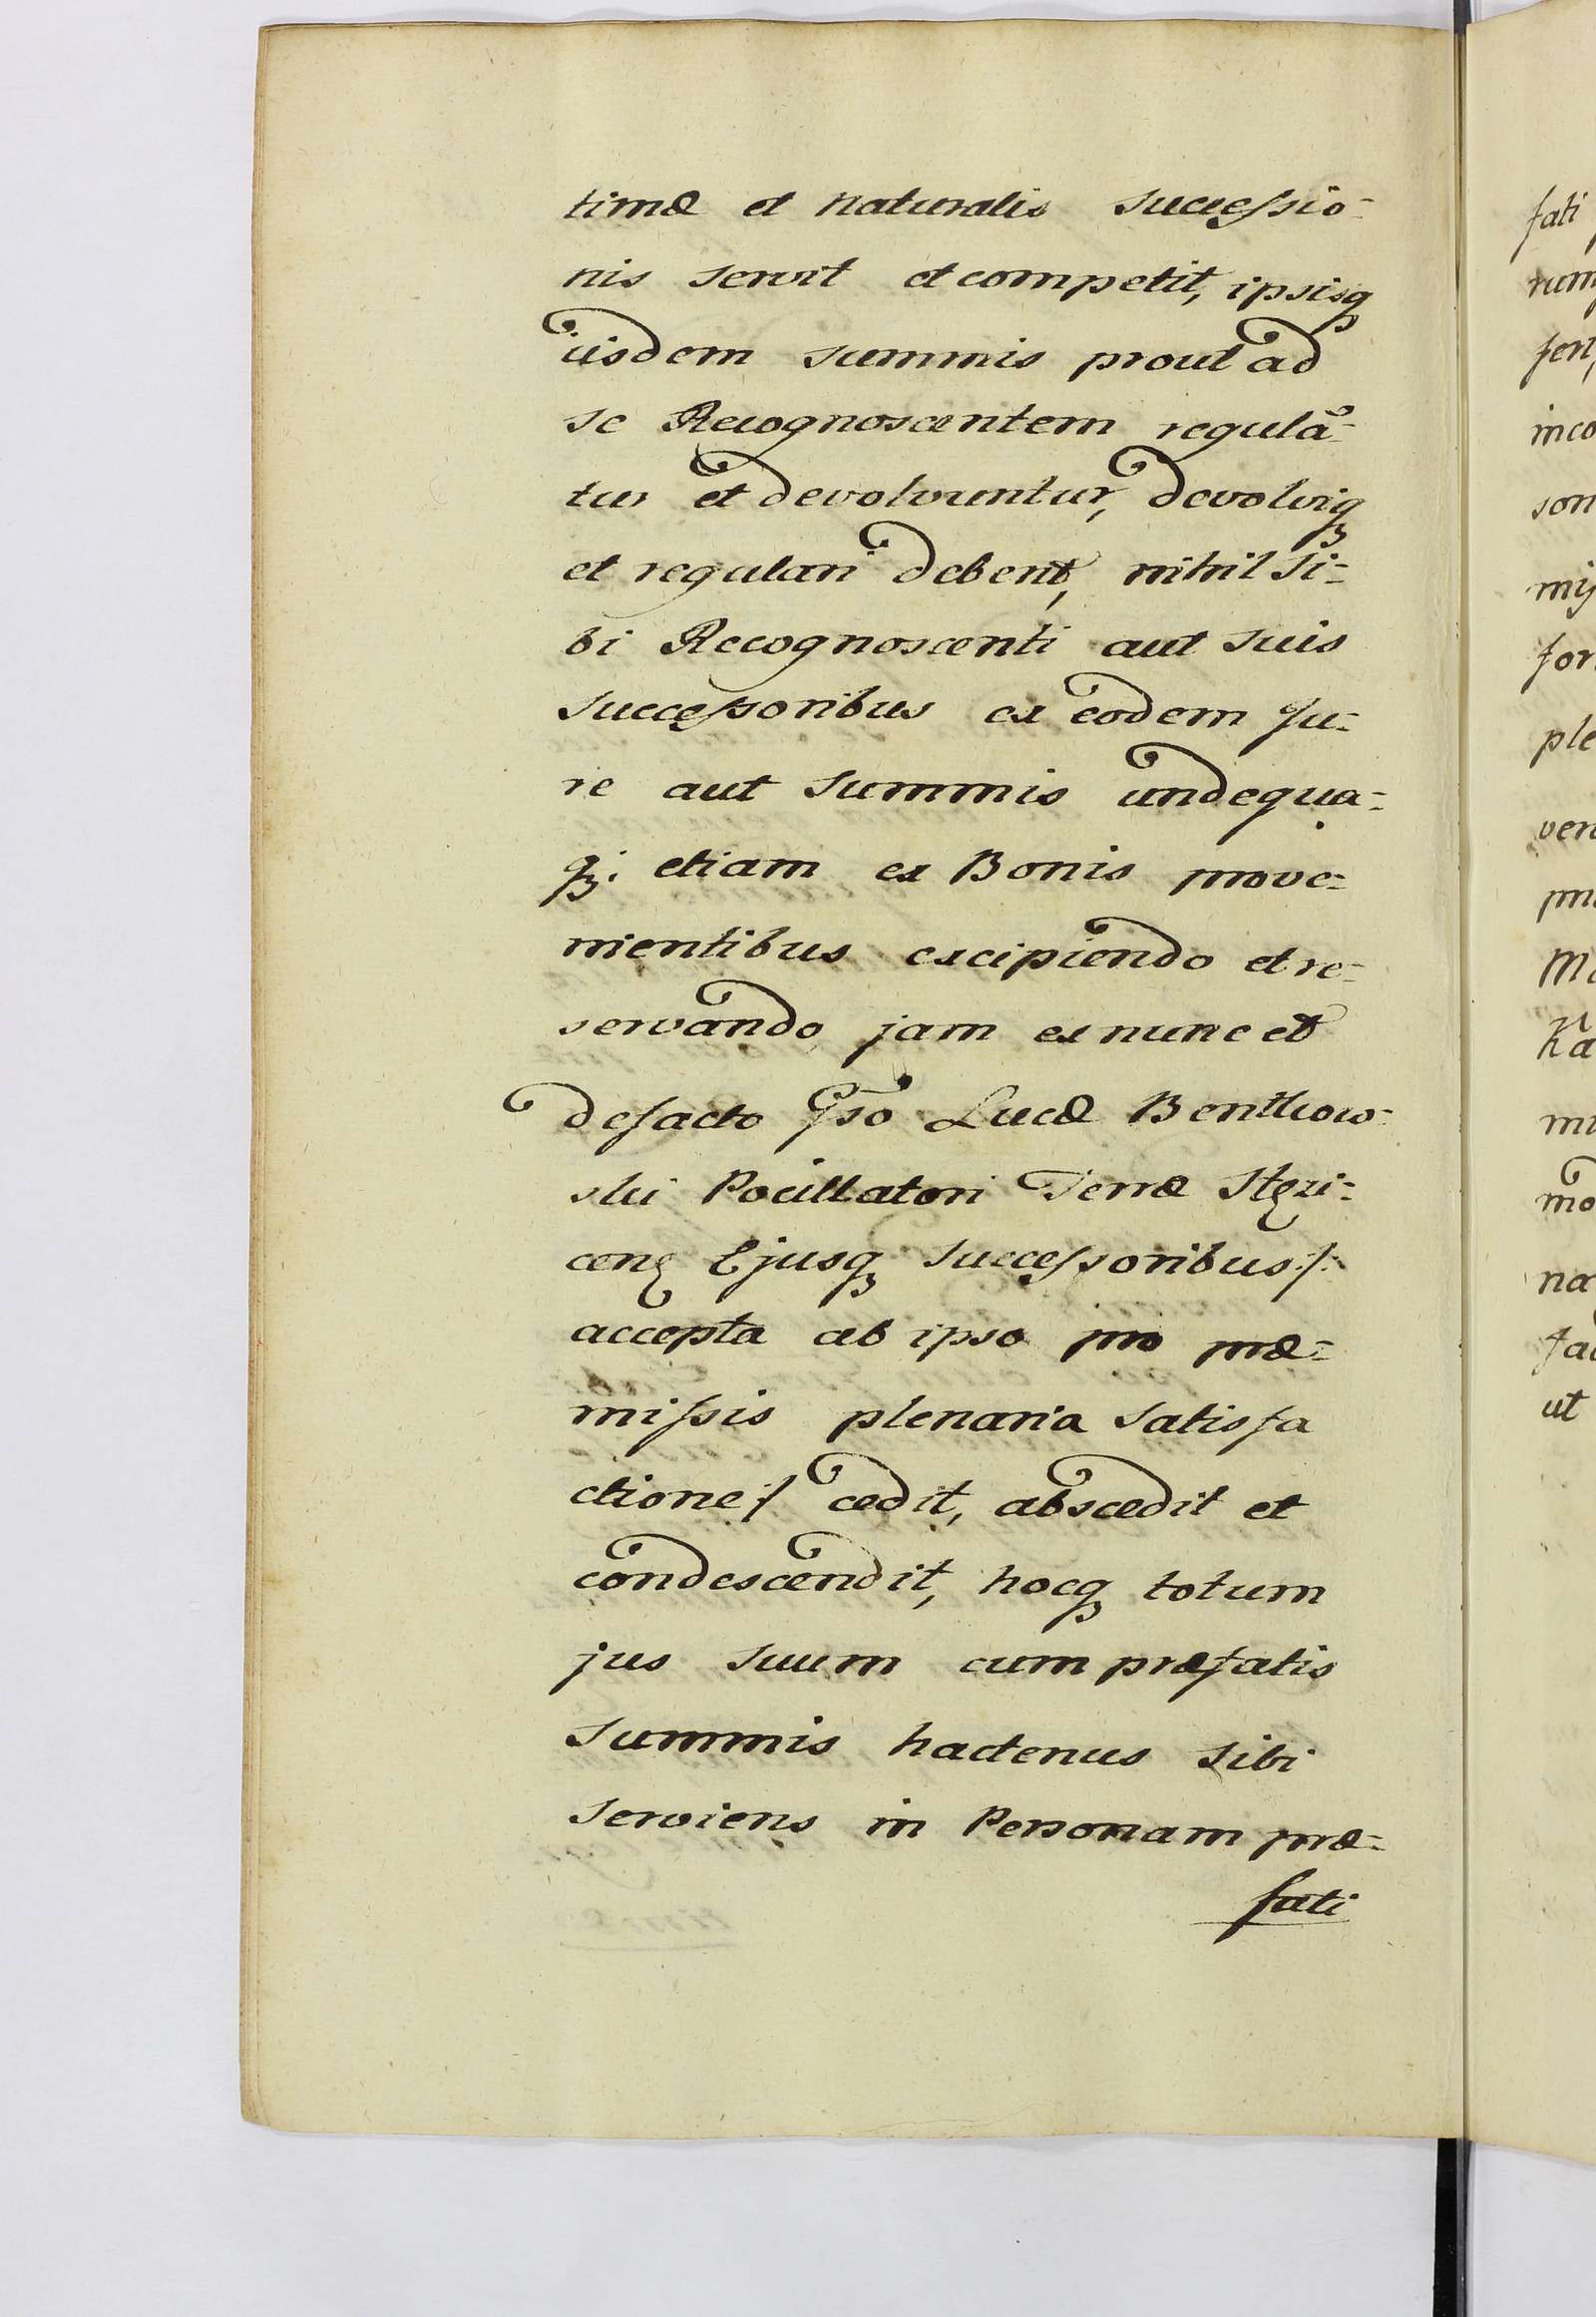 timæ et naturalis successio=
nis servit et competit, ipsisq
iisdem summis prout ad
se Recognoscentem regulã=
tur et devolvuntur, devolviq
et regulari debent, nihil si=
bi Recognoscenti aut suis
successoribus ex eodem Ju=
re aut summis undequa=
q; etiam ex Bonis prove=
nientibus excipiendo et re=
servando jam ex nunc et
defacto Gso Lucæ Bentkow=
ski Pocillatori Terræ Stęži=
cenę Ejusq successoribus /:
accepta ab ipso pro præ=
missis plenaria satisfa
ctione :/ cedit, abscedit et
condescendit, hocq totum
jus suum cum præfatis
summis hactenus sibi
serviens in Personam præ=
fati
fati
rum
fen
inco
son
mis
for
ple
ven
pri
Ma
Ra
mi
mo
na
fa
ut